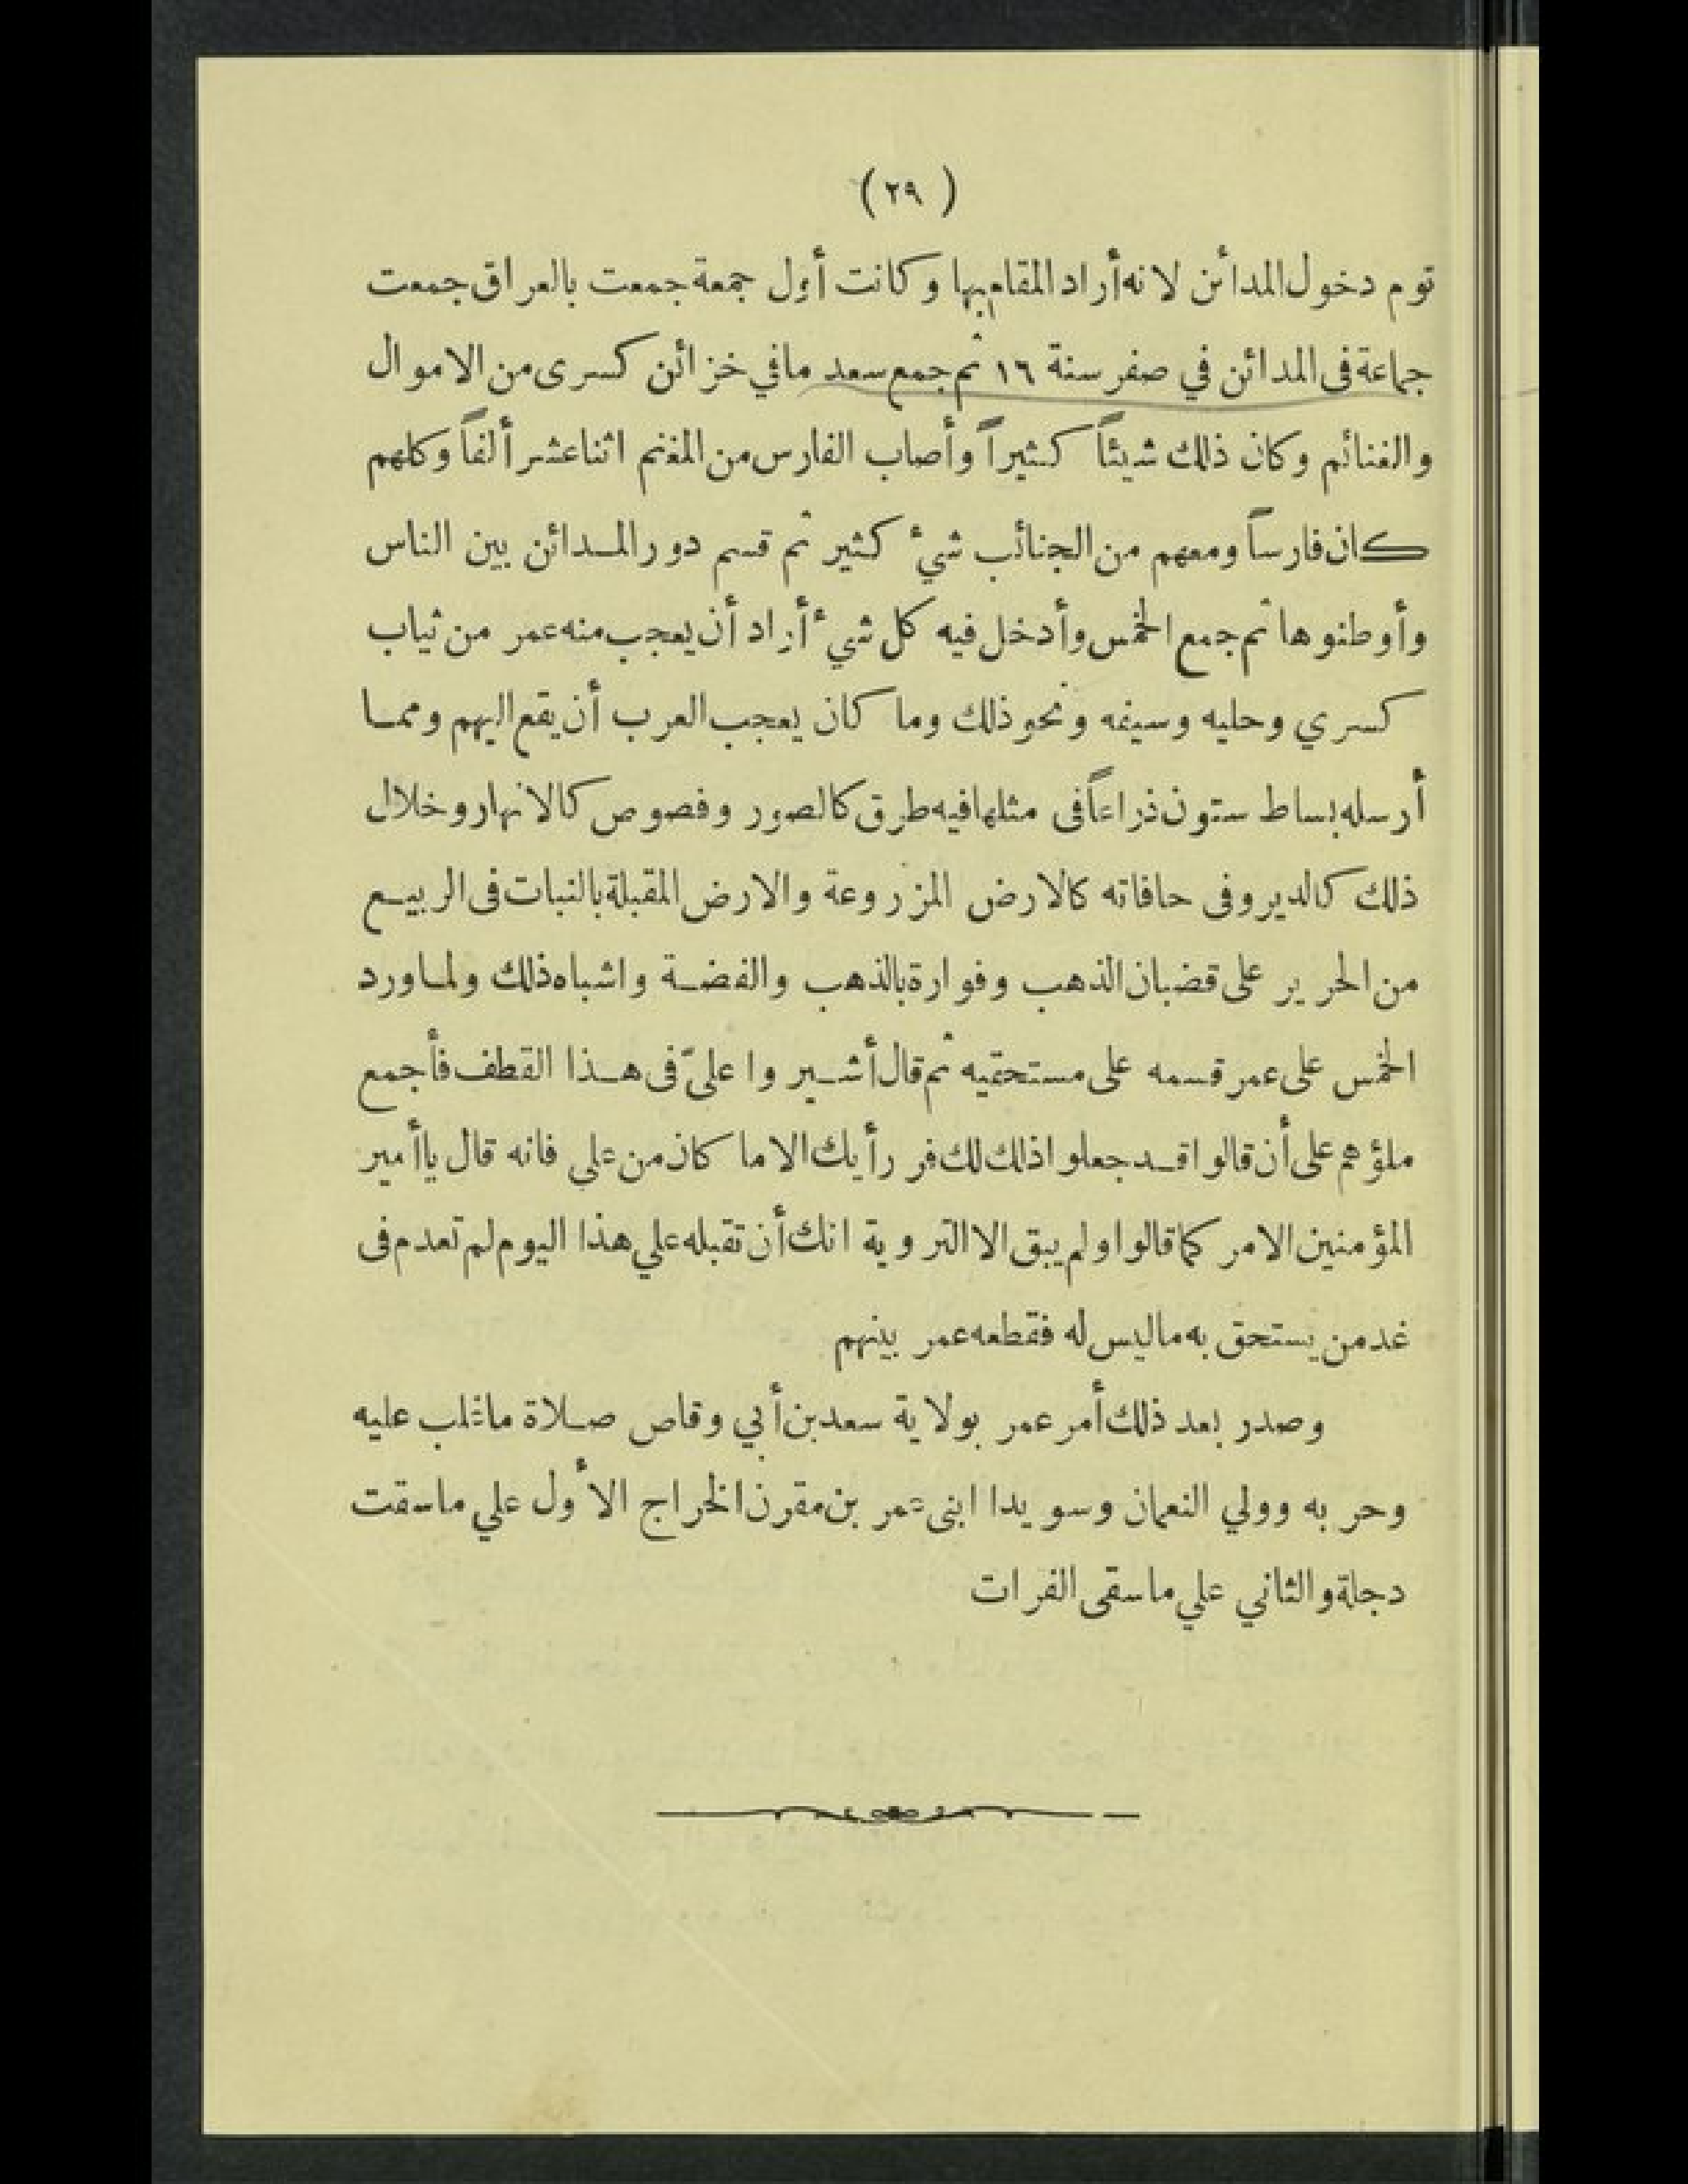 ( ٢٩ )
توم دخول المدائن لانه أراد المقام بها وكانت أول جمعة جمعت بالعراق جمعت
جماعة فى المدائن في صفر سنة ١٦ ثم جمع سعد مافي خزائن كسرى من الاموال
والغنائم وكان ذلك شيئاً كثيراً وأصاب الفارس من المغنم اثنا عشر ألفاً وكلهم
كان فارساً ومعهم من الجنائب شيء كثير ثم قسم دور المدائن بين الناس
وأوطنوها ثم جمع الخمس وأدخل فيه كل شيء أراد أن يعجب منه عمر من ثياب
كسري وحليه وسيفه ونحو ذلك وما كان يعجب العرب أن يقع اليهم ومما
أرسله بساط ستون ذراعاً فى مثلها فيه طرق كالصور وفصوص كالانهار وخلال
ذلك كالدير وفى حافاته كالارض المزروعة والارض المقبلة بالنبات فى الربيع
من الحرير على قضبان الذهب وفوارة بالذهب والفضة واشباه ذلك ولما ورد
الخمس على عمر قسمه على مستحقيه ثم قال أشيروا علىّ فى هذا القطف فأجمع
ملؤهم على أن قالوا قد جعلوا ذلك لك فر رأيك الا ما كان من علي فانه قال ياأمير
المؤمنين الامر كما قالوا ولم يبق الا التروية انك أن تقبله علي هذا اليوم لم تعدم فى
غد من يستحق به ماليس له فقطعه عمر بينهم
وصدر بعد ذلك أمر عمر بولاية سعد بن أبي وقاص صلاة ماغلب عليه
وحربه وولي النعمان وسويدا ابنى عمر بن مقرن الخراج الأول علي ماسقت
دجلة والثاني علي ماسقى الفرات